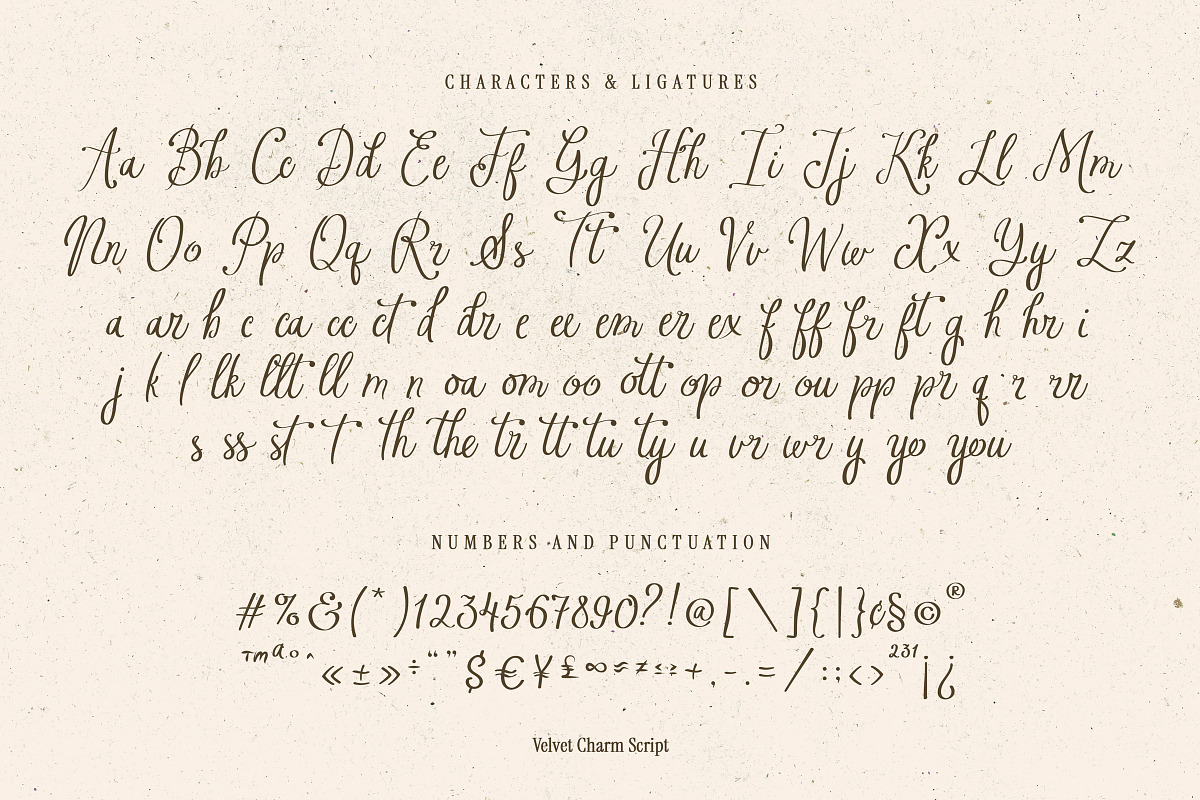 CHARACTERS & LIGATURES
Aa Bb Cc Dd Ee Ff Gg Hh Ii Jj Kk Ll Mm
Nn Oo Pp Qq Rr Ss Tt Uu Vv Ww Xx Yy Zz
a ar b c ca cc ct d dr e ee em er ex f ff fr ft g h hr i
j k l lk lltt ll m n oa om oo ott op or ou pp pr q r rr
s ss st t th the tr tt tu ty u vr wr y yo you
NUMBERS AND PUNCTUATION
#%&(*)1234567890?!@[\]{|}¢§©®
™ªº^«±»÷“”$€¥£∞≈≠≤≥+,-.=/:;<>²³¹¡¿
Velvet Charm Script